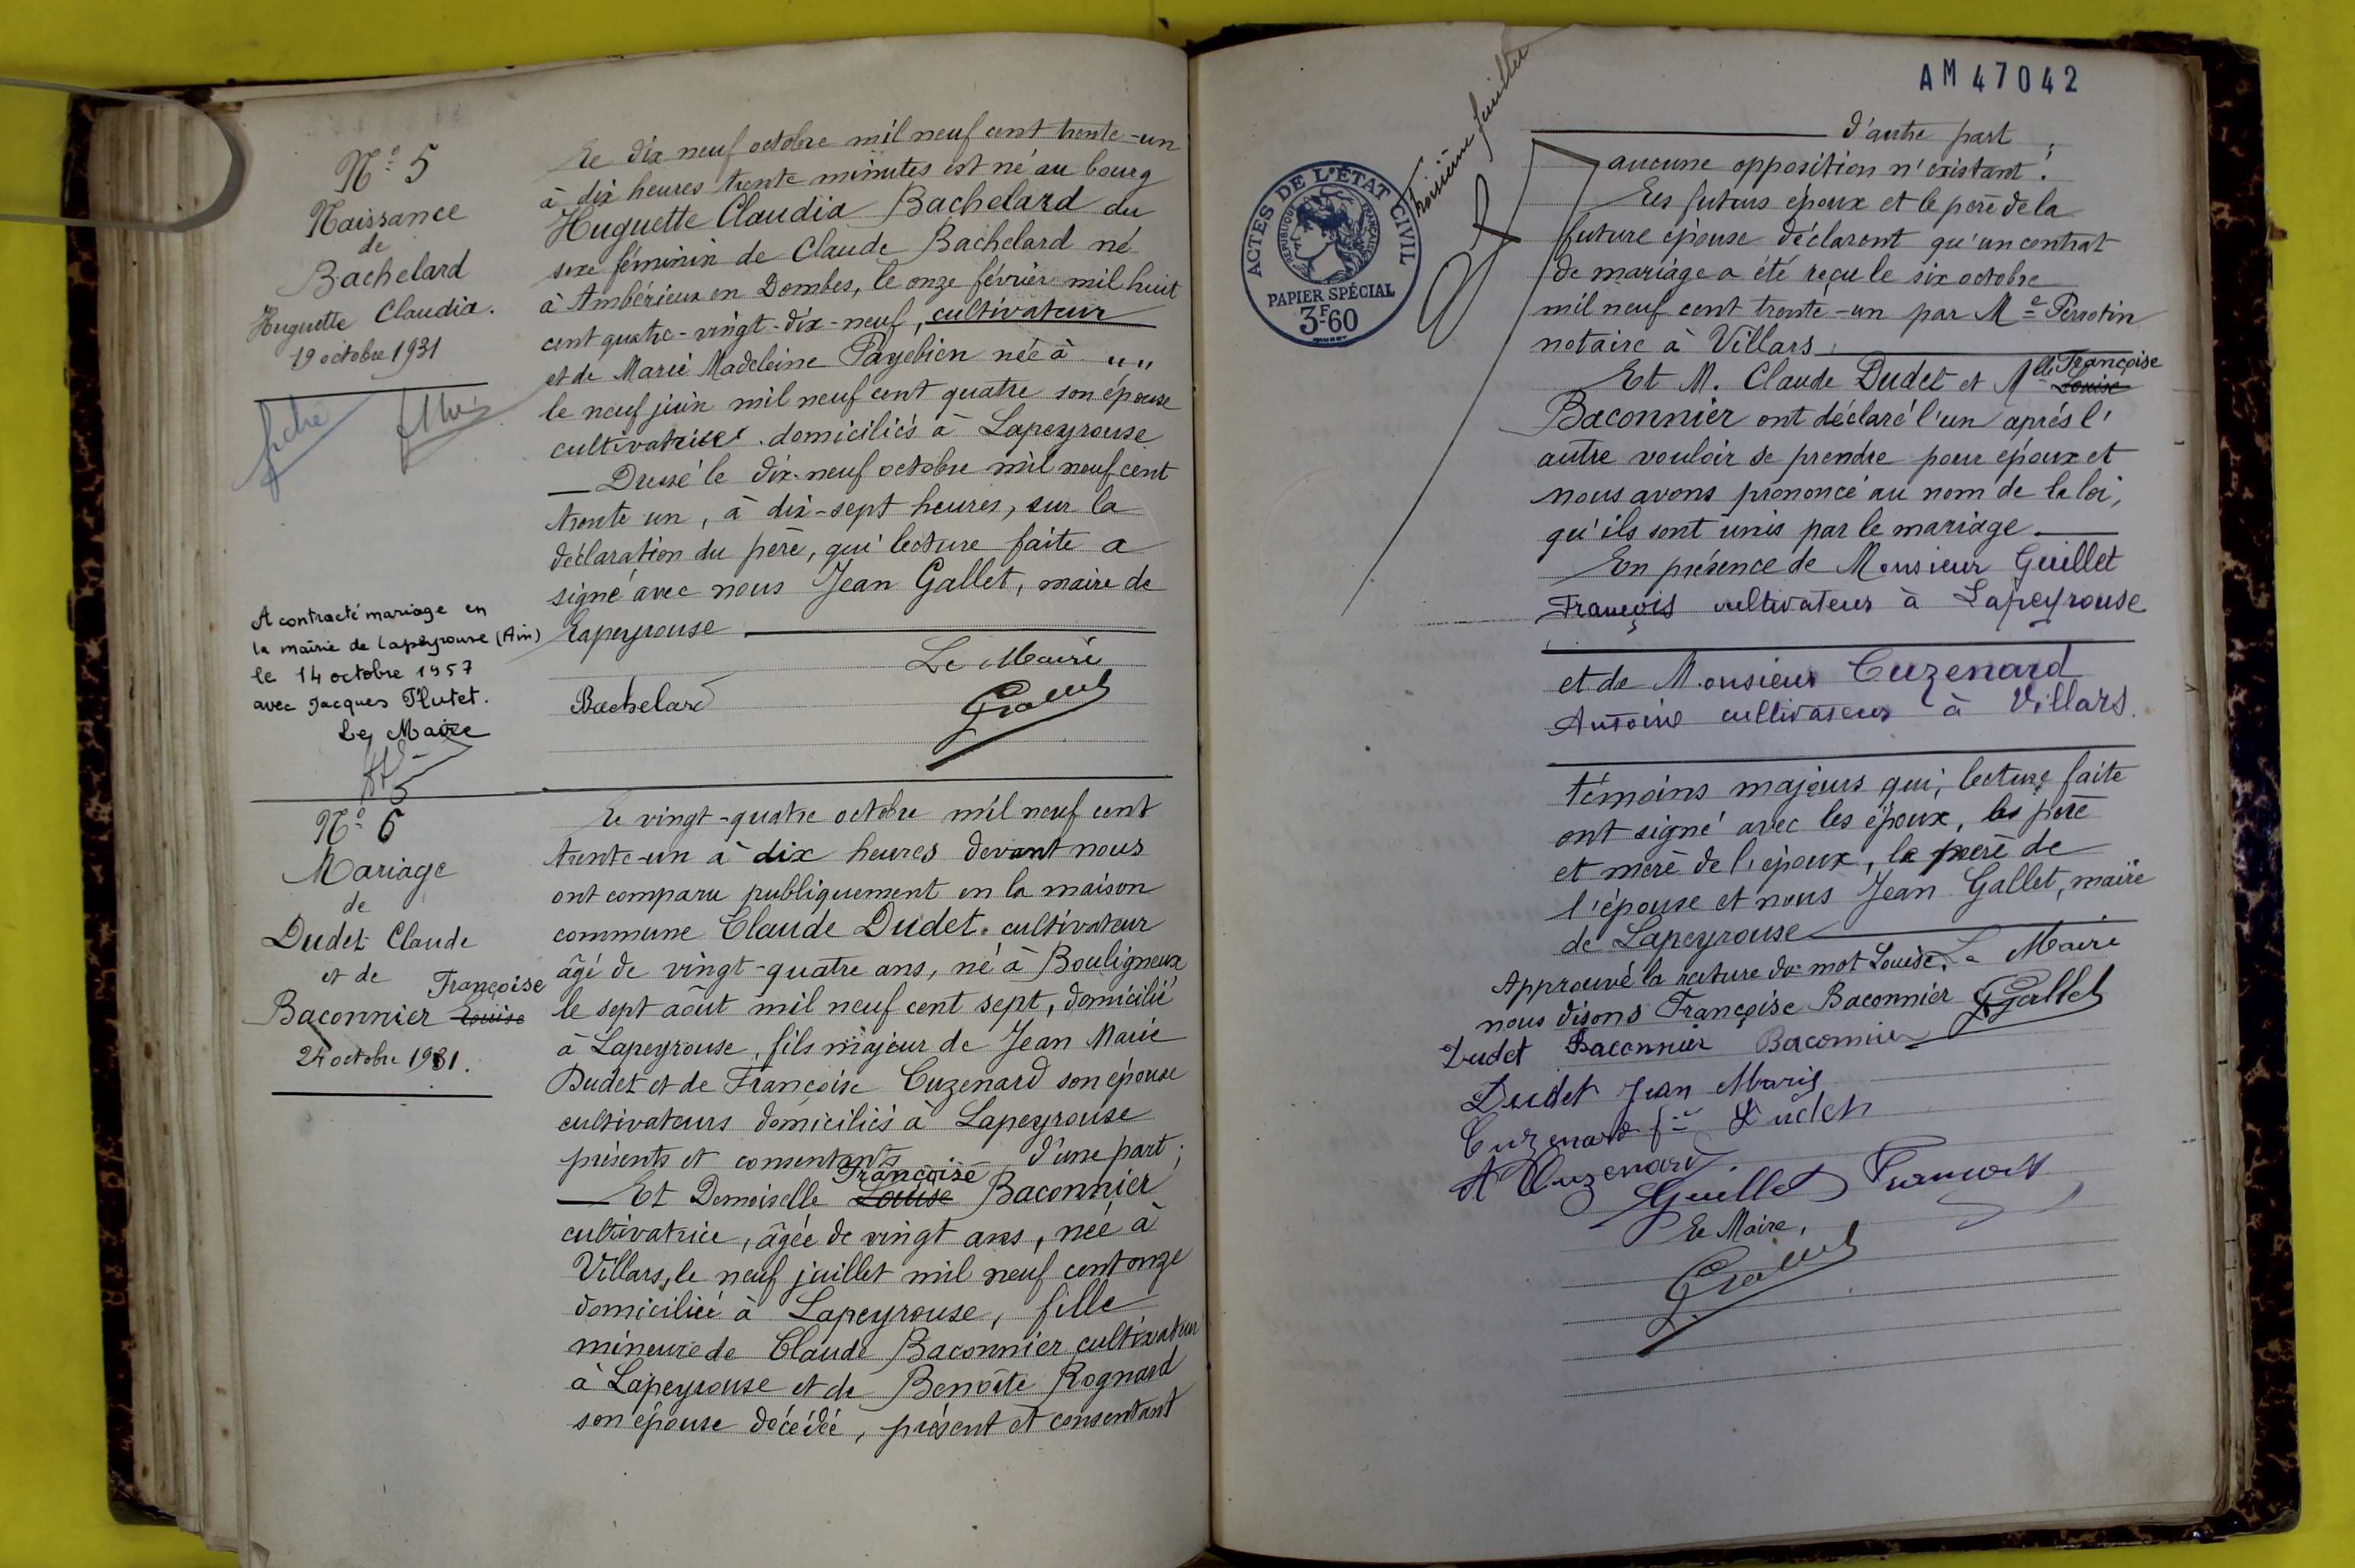 N° 5
Naissance
de
Bachelard
Huguette Claudia.
19 octobre 1931
fiche
A contracté mariage en
la mairie de Lapeyrouse (Ain)
le 14 octobre 1957
avec Jacques Plutet.
Le Maire
Le dix neuf octobre mil neuf cent trente-un
à dix heures trente minutes est né au bourg
Huguette Claudia Bachelard du
sexe féminin de Claude Bachelard né
à Ambérieux en Dombes, le onze février mil huit
cent quatre-vingt-dix-neuf, cultivateur
et de Marie Madeleine Payebien née à " "
le neuf juin mil neuf cent quatre son épouse
cultivatrice domiciliés à Lapeyrouse
Dressé le dix-neuf octobre mil neuf cent
trente un, à dix-sept heures, sur la
déclaration du père, qui lecture faite a
signé avec nous Jean Gallet, maire de
Lapeyrouse
Le Maire
Bachelard Gallet
N° 6
Mariage
de
Dudet Claude
et de Françoise
Baconnier Louise
24 octobre 1931.
Le vingt-quatre octobre mil neuf cent
trente-un à dix heures devant nous
ont comparu publiquement en la maison
commune Claude Dudet. cultivateur
âgé de vingt-quatre ans, né à Bouligneux
le sept août mil neuf cent sept, domicilié
à Lapeyrouse, fils majeur de Jean Marie
Dudet et de Françoise Cuzenard son épouse
cultivateurs domiciliés à Lapeyrouse
présents et consentants d'une part;
Françoise
Et Demoiselle Louise Baconnier
cultivatrice, âgée de vingt ans, née à
Villars, le neuf juillet mil neuf cent onze
domiciliée à Lapeyrouse, fille
mineure de Claude Baconnier cultivateur
à Lapeyrouse et de Benoîte Rognard
son épouse décédée, présent et consentant
AM 47042
Troisième feuillet
ACTES DE L'ÉTAT CIVIL
RÉPUBLIQUE FRANÇAISE
PAPIER SPÉCIAL
3F60
d'autre part,
aucune opposition n'existant.
Les futurs époux et le père de la
future épouse déclarent qu'un contrat
de mariage a été reçu le six octobre
mil neuf cent trente-un par Me Perrotin
notaire à Villars
Françoise
Et M. Claude Dudet et Mlle Louise
Baconnier ont déclaré l'un après l'
autre vouloir se prendre pour époux et
nous avons prononcé au nom de la loi,
qu'ils sont unis par le mariage
En présence de Monsieur Guillet
François cultivateur à Lapeyrouse
et de Monsieur Cuzenard
Antoine cultivateur à Villars.
témoins majeurs qui, lecture faite
ont signé avec les époux, les père
et mère de l'époux, le père de
l'épouse et nous Jean Gallet, maire
de Lapeyrouse
Approuvé la rature du mot Louise. Le Maire
nous disons Françoise Baconnier Gallet
Dudet Baconnier Baconnier
Dudet Jean Marie
Cuzenard fe Dudet
A Cuzenard.
Guillet François
Le Maire,
Gallet